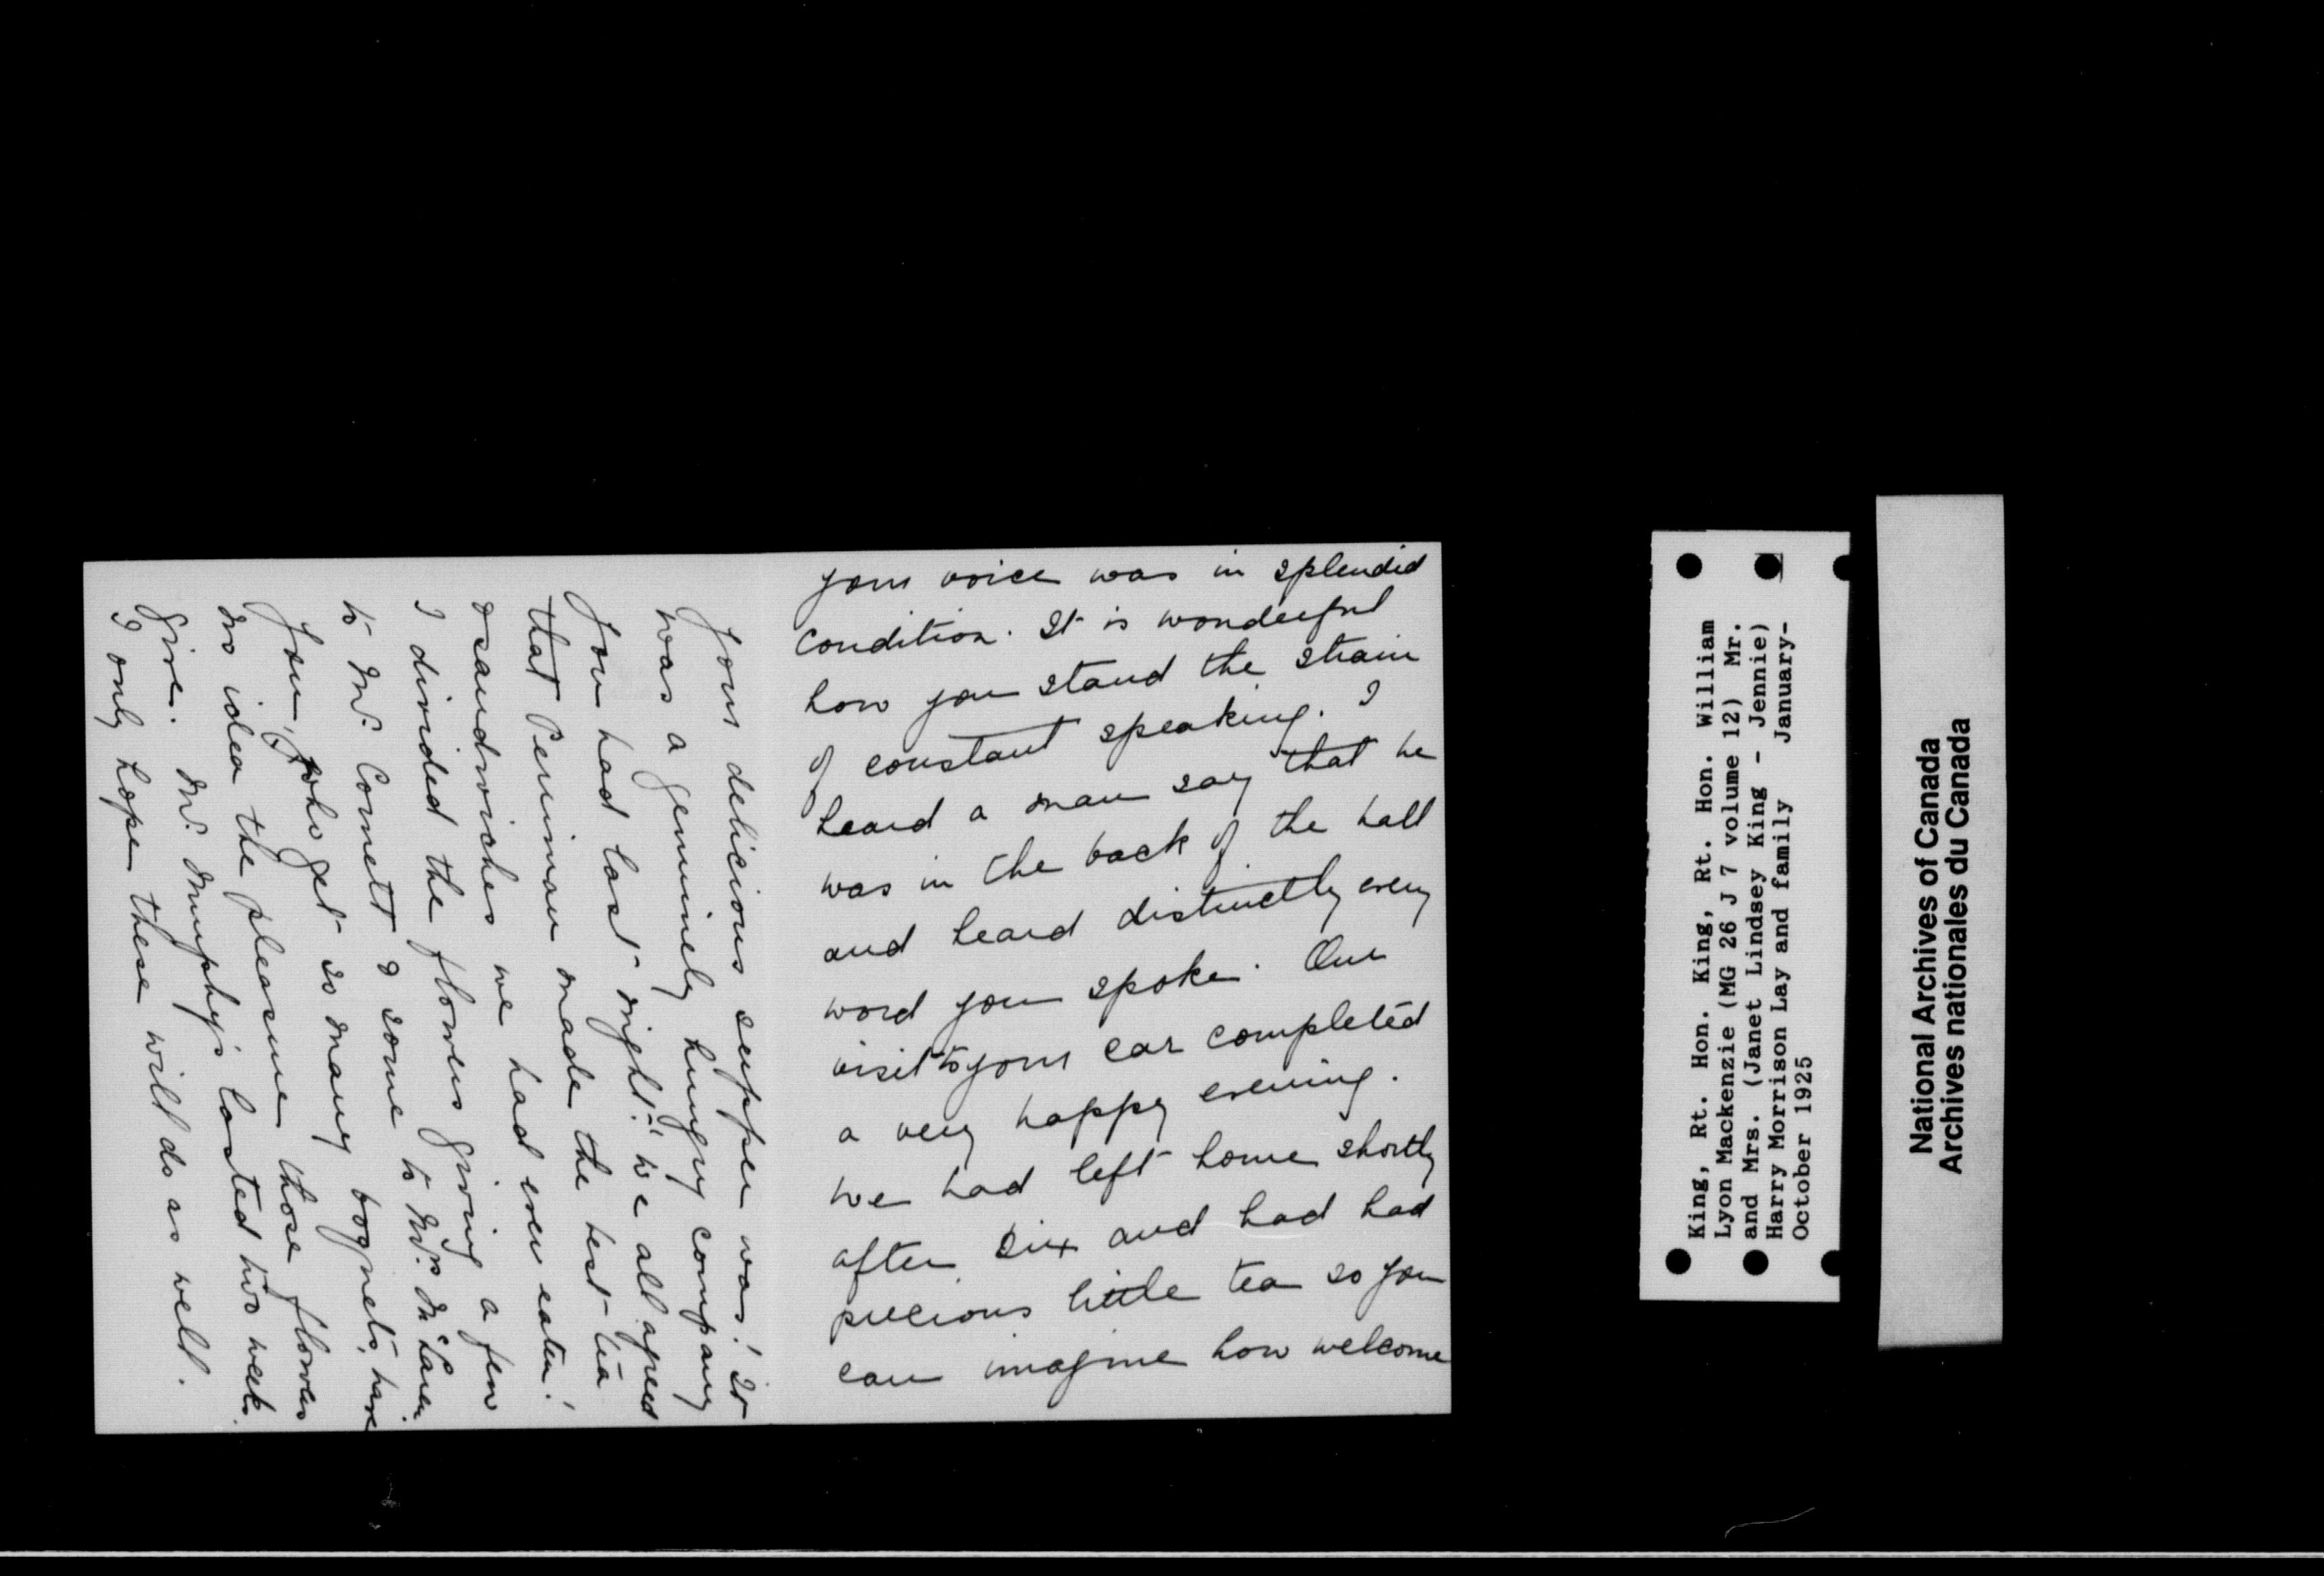 your voice was in splendid
condition. It is wonderful
how you stand the strain
of constant speaking. I
heard a man say that he
was in the back of the hall
and heard distinctly every
word you spoke. Our
visit to your car completed
a very happy evening.
We had left home shortly
after six and had had
precious little tea so you
can imagine how welcome
your delicious supper was! It
was a genuinely hungry company
you had last night! We all agreed
that Perriman made the best tea
& sandwiches we had ever eaten!
I divided the flowers giving a few
to Mr. Cornett & some to Mrs. McLaren.
You, who get so many bognets, have
no idea the pleasure those flowers
give. Mr. Murphy's lasted two weeks.
I only hope these will do as well.
King, Rt. Hon. King, Rt. Hon. William
Lyon Mackenzie (MG 26 J 7 volume 12) Mr.
and Mrs. (Janet Lindsey King - Jennie)
Harry Morrison Lay and family January-
October 1925
National Archives of Canada
Archives nationales du Canada